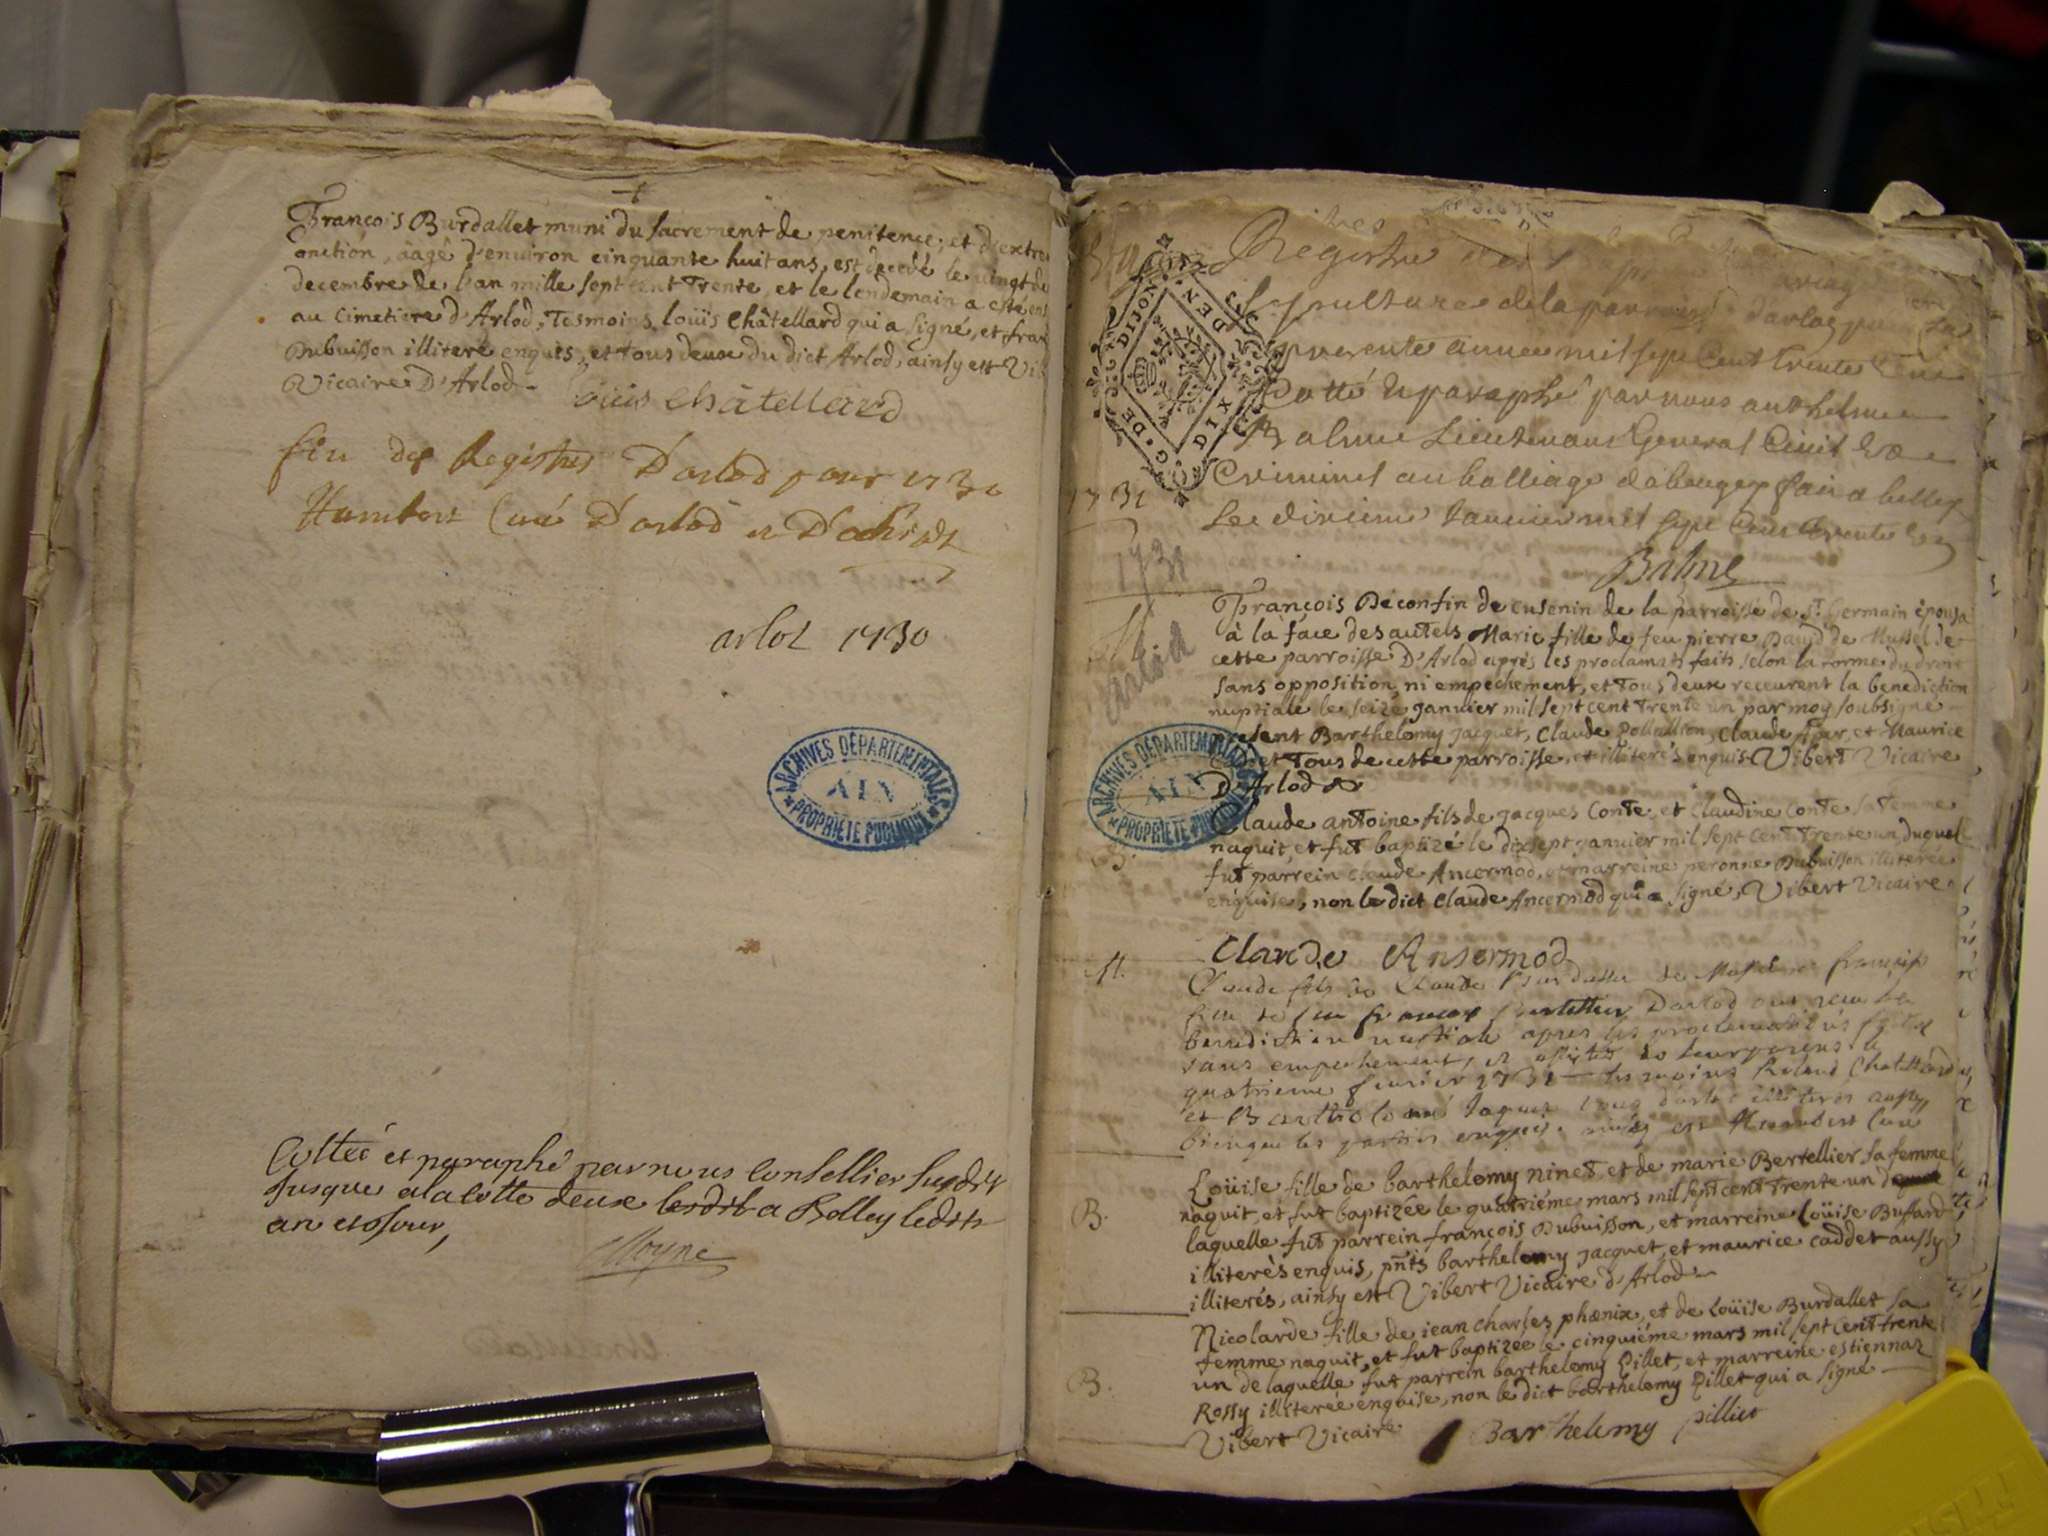 François Burdallet muni du sacrement de penitence, et d'extre
onction, aagé d'environ cinquante huit ans, est decedé le vingt de
decembre de l'an mille sept cent Trente et le lendemain a esté ens
au Cimetiere d'Arlod, Tesmoins Loüis Châtellard qui a signé, et fran
Dubuisson illiteré enquis, et tous deux du dict Arlod, ainsy est Vib
Vicaire D'Arlod
Loüis Châtellard
fin des Registres D'arlod pour 1730
Humbert Curé D'arlod et D'
arlot 1730
ARCHIVES DÉPARTEMENTALES
AIN
PROPRIÉTÉ PUBLIQUE
Cottéé et paraphé par nous Consellier susdit
jusques a la cotte deux lesdit a Belley ledits
an et jour,
Moyne
Registre des
sepultures de la parroisse d'arlod pour la
presente année mil sept Cent trente
Cotté et paraphé par nous anthelme
Balme Lieutenant General Civil et
Criminel au balliage de bugey fait a belley
Le dixieme Janvier mil sept Cent trente un
Balme
G. DE DIJON
DIX DEN
1731
1731
Arlod
M.
François Decontin de cusenin de la parroisse de St Germain épousa
à la face des autels Marie fille de feu pierre Baud de Mussel de
cette parroisse D'Arlod après les proclamats faits selon la forme du droit
sans opposition, ni empechement, et Tous deux receurent la benediction
nuptiale le seize janvier mil sept cent Trente un par moy soubsigné
present Barthelomy Jacquet, Claude Pollallion, Claude, et Maurice
et Tous de cette parroisse, et illiterés enquis Vibert Vicaire
D'Arlod
ARCHIVES DÉPARTEMENTALES
AIN
PROPRIÉTÉ PUBLIQUE
B.
Claude antoine fils de jacques Conte, et Claudine Conte sa femme
naquit, et fut baptizé le dix sept janvier mil sept cent Trente un, duquel
fut parrein claude Ancermod, et marreine peronne Dubuisson illiterée
enquise, non le dict Claude Ancermod qui a signé, Vibert Vicaire
Claude Ansermod
M.
Claude fils de Claude de Mussel et françoise
fille de feu françois D'arlod ont receu la
benediction nuptiale apres les proclamations faites
sans empechement, et assistés de leurs parens le
quatrieme fevrier 1731 tesmoins Roland Chatellard
et Bartholomé Jaquet tous d'arlod illiteres aussy
bien que les parties enquis ainsy est Humbert Curé
B.
Loüise fille de barthelomy ninet, et de marie Bertellier sa femme
naquit, et fut baptizée le quatriéme mars mil sept cent Trente un de
laquelle fut parrein françois Dubuisson, et marreine Loüise Buffard
illiterés enquis, pñts barthelomy jacquet, et maurice caddet aussy
illiterés, ainsy est Vibert Vicaire d'Arlod
B.
Nicolarde fille de jean charles phœnix, et de Loüise Burdallet sa
femme naquit, et fut baptizée le cinquiéme mars mil sept cent trente
un de laquelle fut parrein barthelomy Pillet, et marreine estiennaz
Rossy illiterée enquise, non le dict barthelemy Pillet qui a signé
Vibert Vicaire
Barthelemy pilliet